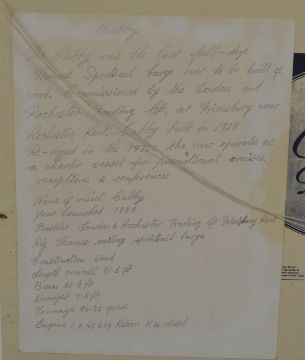 Cabby
The Cabby was the last full-size
Thames Spritsail barge ever to be built of
wood. Commissioned by the London and
Rochester Trading Co, at Frindsbury near
Rochester, Kent. Cabby built in 1928
Re-rigged in the 1970s she now operates as
a charter vessel for promotional cruises,
receptions & conferences
Name of vessel Cabby
Year launched 1928
Builder London & Rochester Trading Co Frindsbury Kent
Rig Thames sailing spritsail barge
Construction Wood
Length overall 91.6 ft
Beam 21.6 ft
Draught 7.5 ft
Tonnage 96.75 gross
Engine 1 X Kelvin K4 diesel